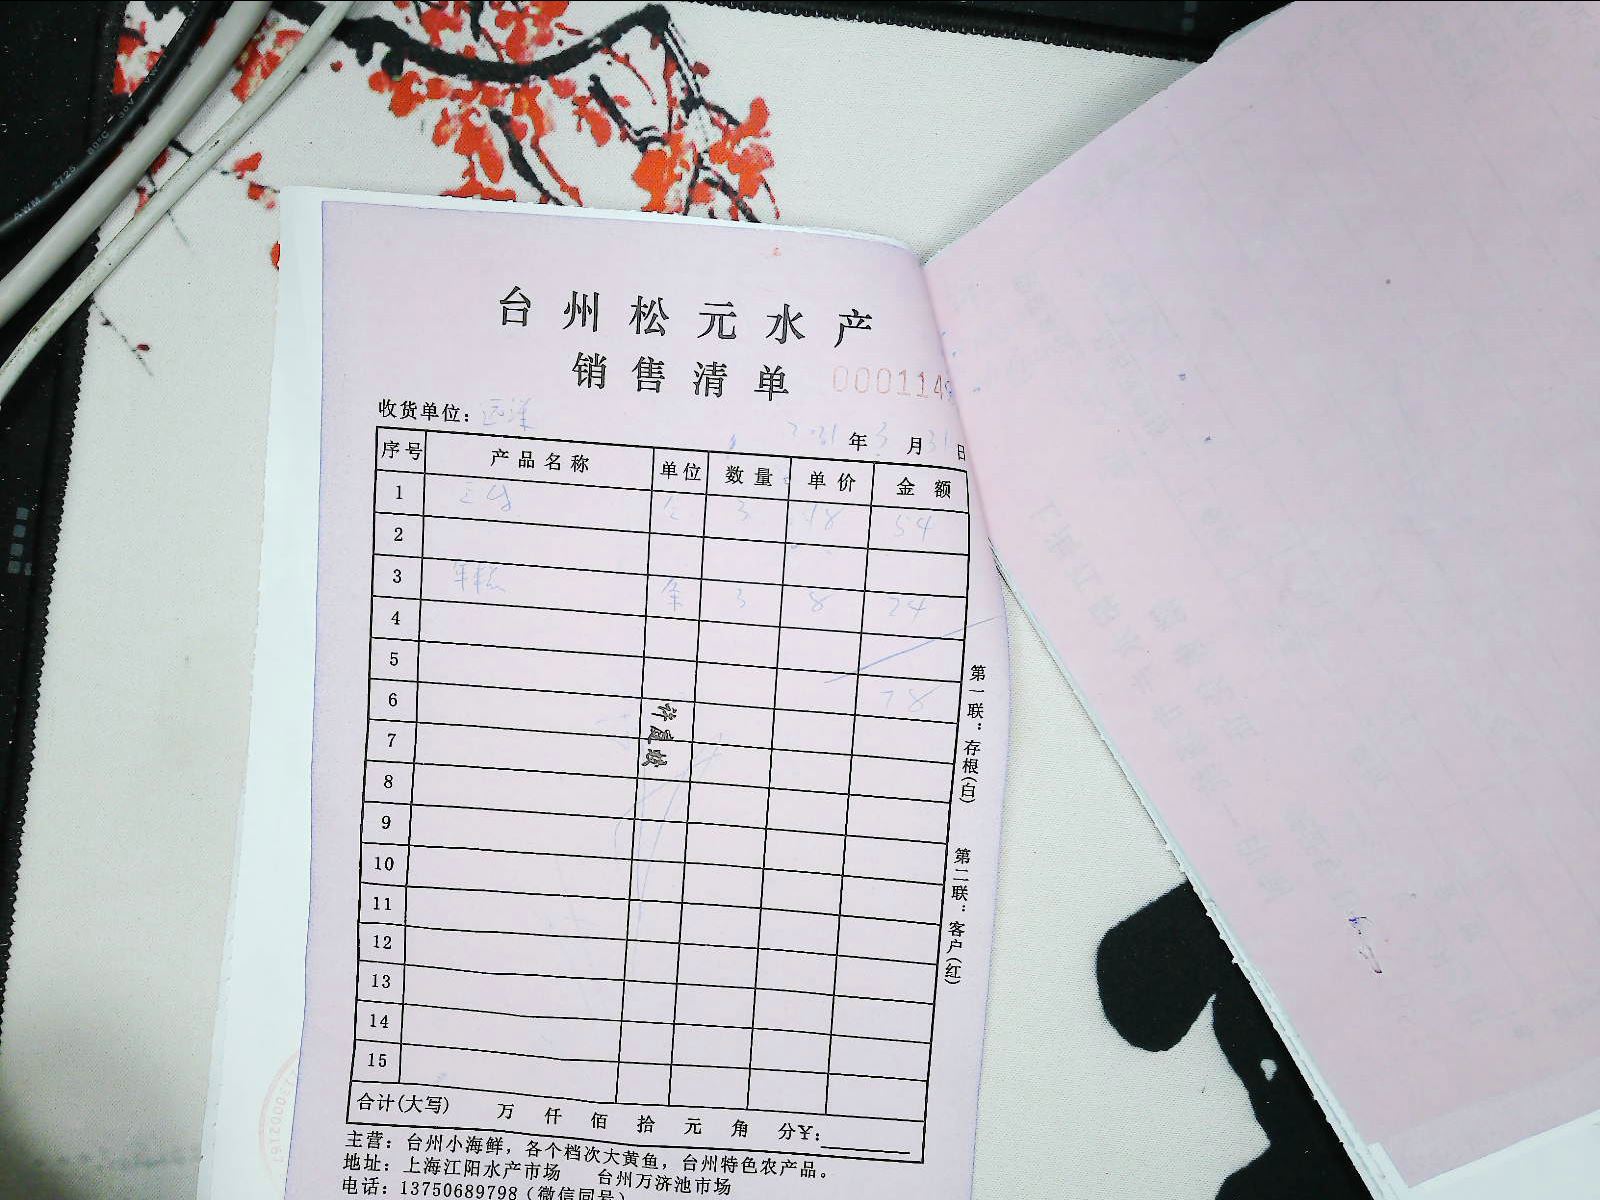 台州松元水产
销售清单 000114
收货单位：远洋
2021年3月31日
序号 产品名称 单位 数量 单价 金额
1 3 18 54
2
3 年糕 条 3 8 24
4
5
6 78
7
8
9
10
11
12
13
14
15
合计(大写) 万 仟 佰 拾 元 角 分¥:
主营：台州小海鲜，各个档次大黄鱼，台州特色农产品。
地址：上海江阳水产市场 台州万济池市场
电话：13750689798（微信同号）
第一联：存根(白)
第二联：客户(红)
AWM 2725 80°C 30V